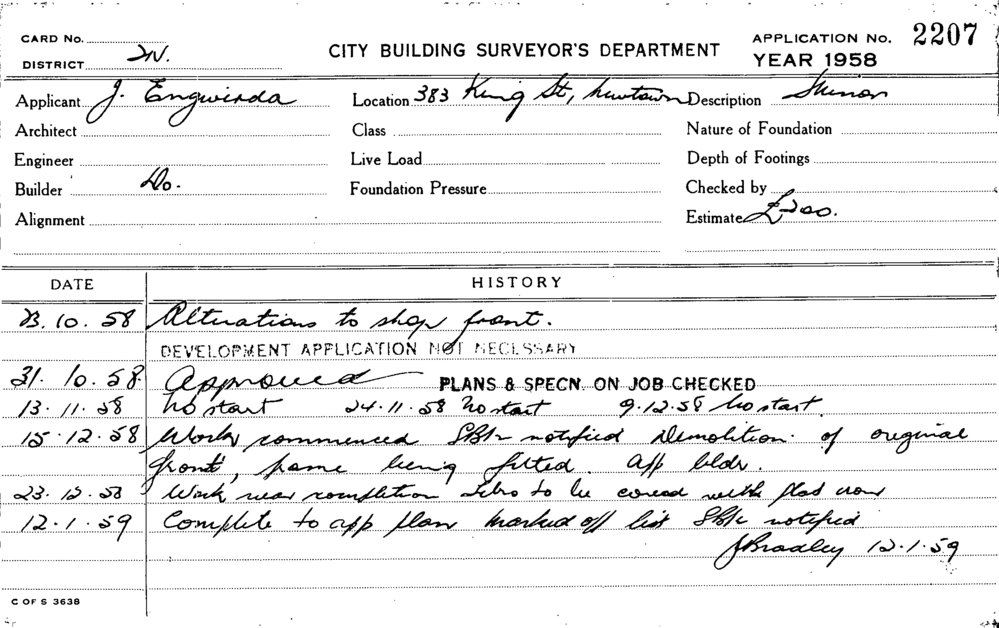 CARD No.
DISTRICT N.
CITY BUILDING SURVEYOR'S DEPARTMENT
APPLICATION No. 2207
YEAR 1958
Applicant J. Engwirda
Location 383 King St, Newtown
Description Minor
Architect
Class
Nature of Foundation
Engineer
Live Load
Depth of Footings
Builder Do.
Foundation Pressure
Checked by
Alignment
Estimate £200.
DATE HISTORY
23.10.58 Alterations to shop front.
DEVELOPMENT APPLICATION NOT NECESSARY
31.10.58. Approved PLANS & SPECN. ON JOB CHECKED
13.11.58 No start 24.11.58 No start 9.12.58 No start.
15.12.58 Work commenced notified Demolition of original
front, frame being fitted. app bldr.
23.12.58 Work near completion to be covered with flat iron
12.1.59 Complete to app plan Marked off list notified
J Bradley 12.1.59
C OF S 3638